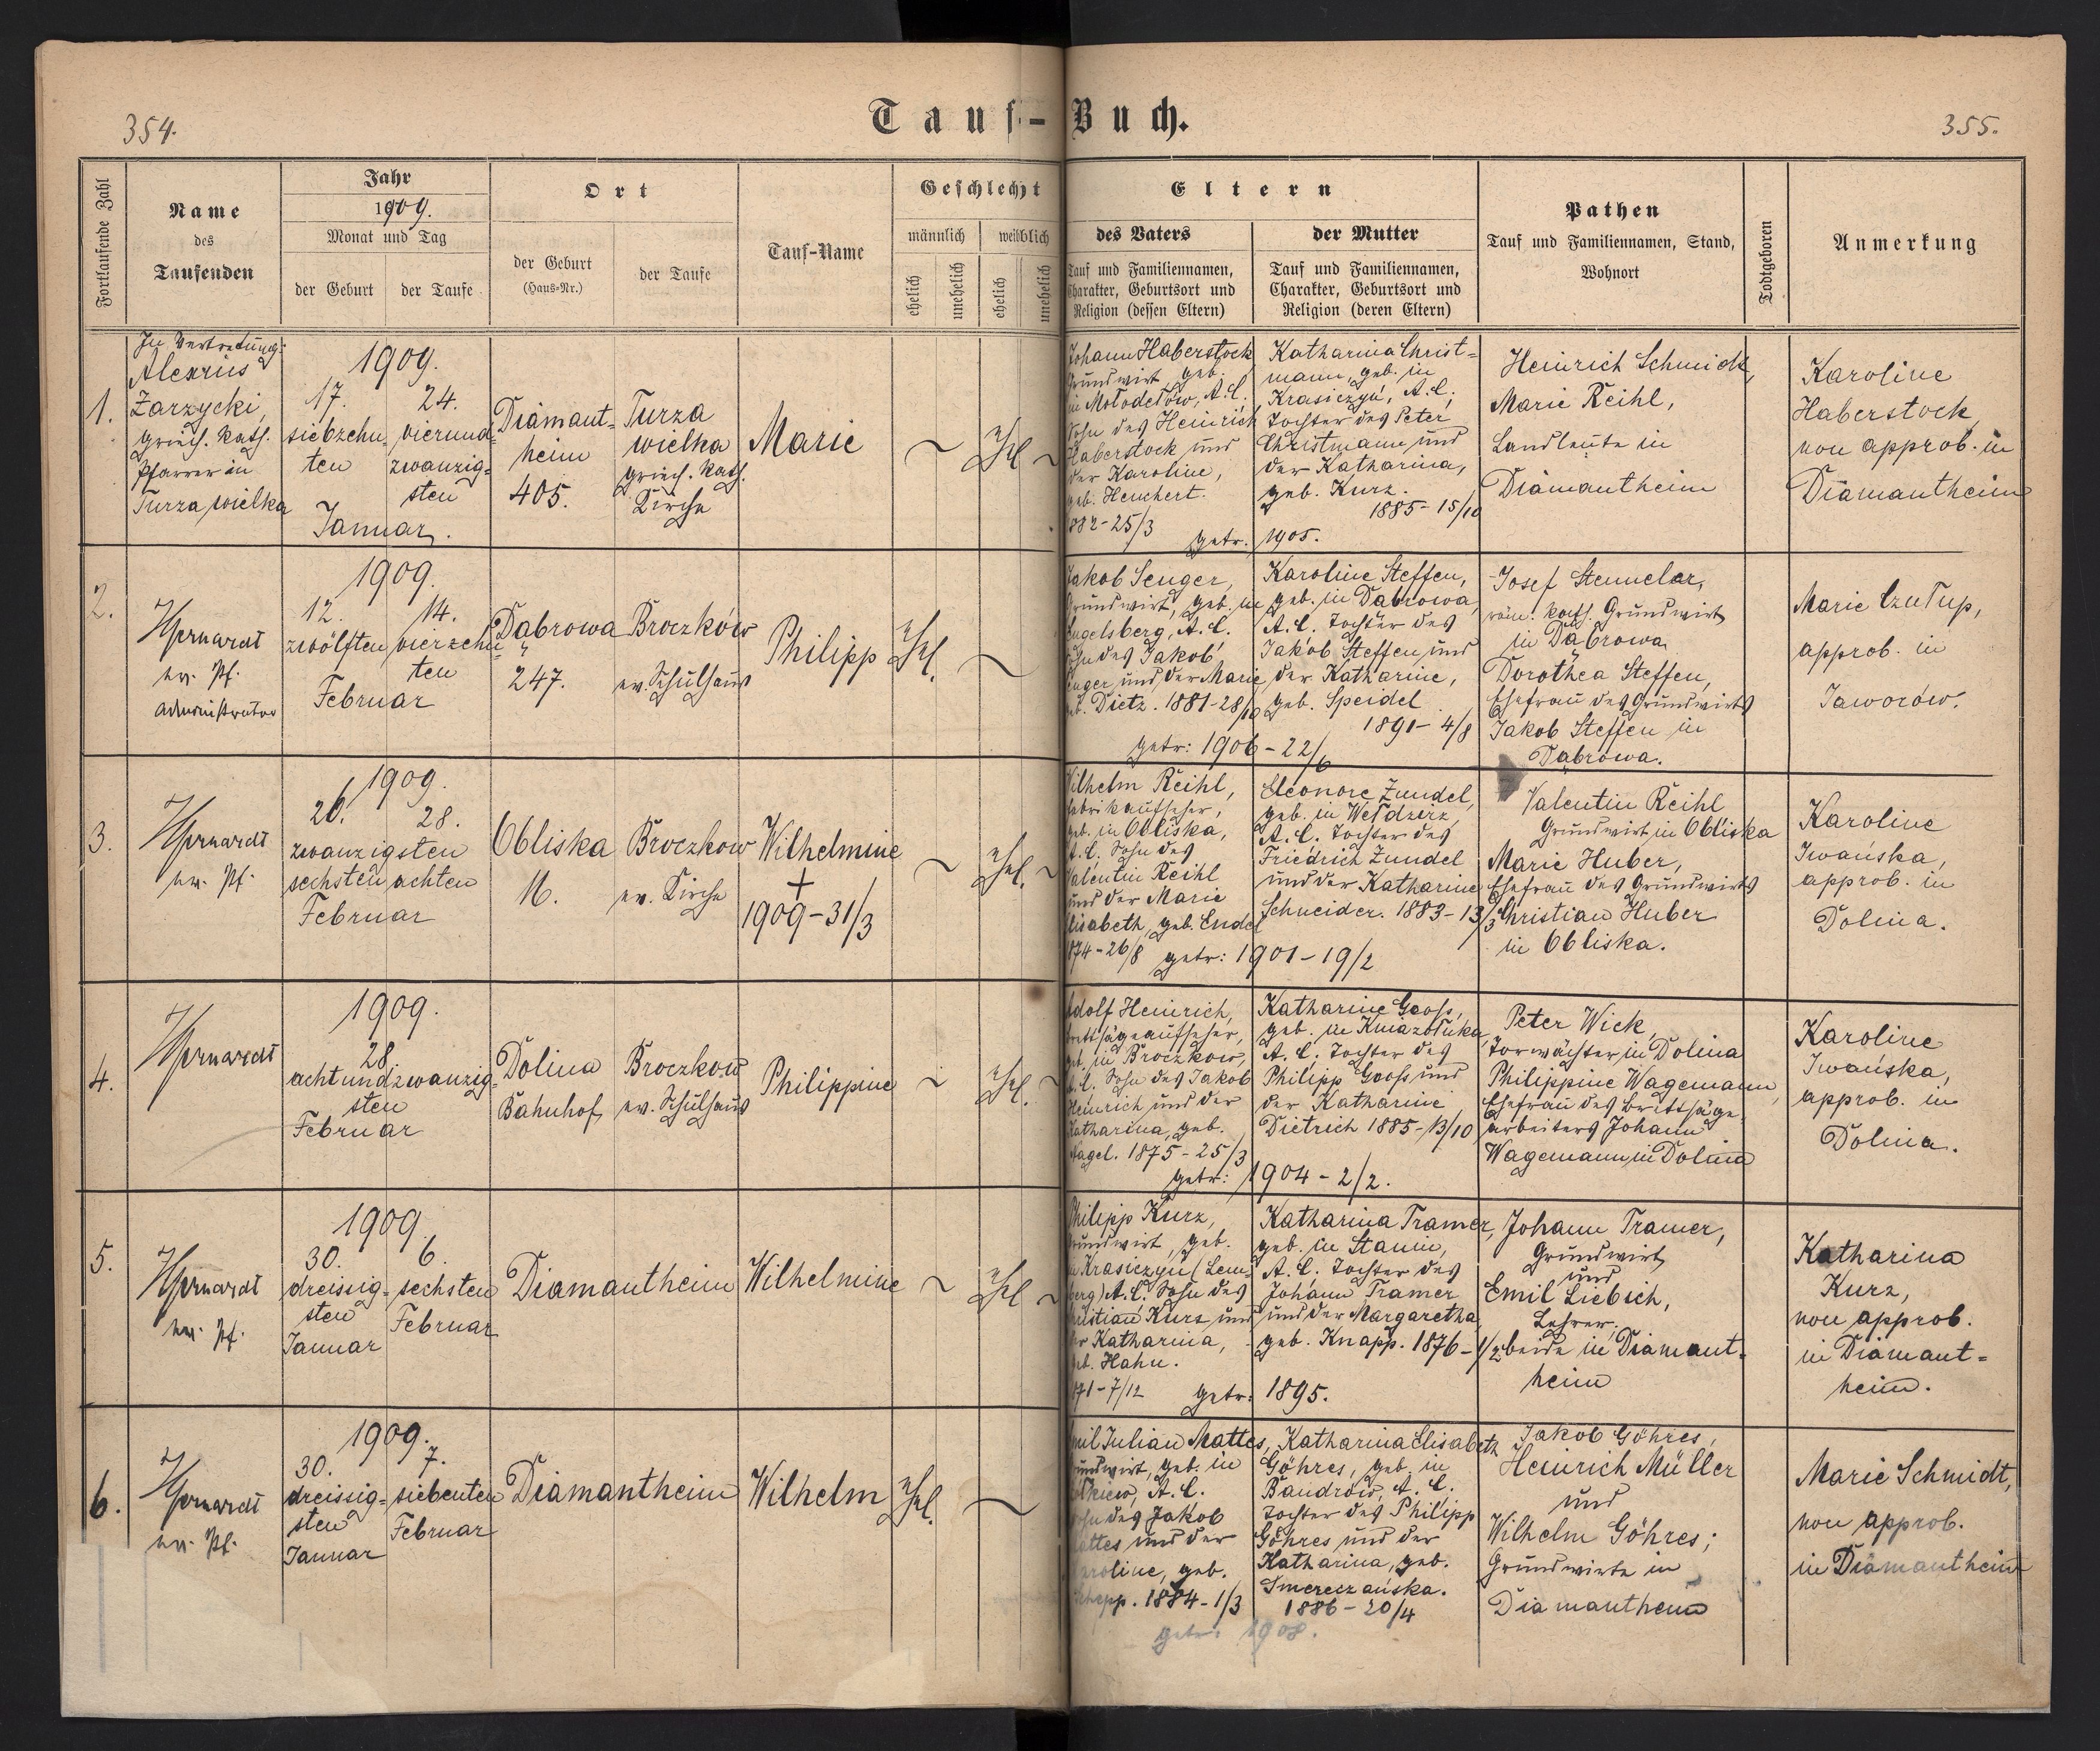 354.
Tauf-Buch.
355.
Fortlaufende Zahl
Name
des
Taufenden
Jahr
1909.
Monat und Tag
der Geburt
der Taufe
Ort
der Geburt
(Haus-Nr.)
der Taufe
Tauf-Name
Geschlecht
männlich
weiblich
ehelich
unehelich
ehelich
unehelich
Eltern
des Vaters
Tauf und Familiennamen,
Charakter, Geburtsort und
Religion (dessen Eltern)
der Mutter
Tauf und Familiennamen,
Charakter, Geburtsort und
Religion (deren Eltern)
Pathen
Tauf und Familiennamen, Stand,
Wohnort
Todtgeboren
Anmerkung
1.
In Vertretung:
Alexius
Zarzycki,
griech. kath.
Pfarrer in
Turza wielka
1909.
17.
siebzehn-
ten
24.
vierund-
zwanzig-
sten
Januar.
Diamant-
heim
405.
Turza
wielka
griech. kath.
Kirche
Marie
~
Ehel.
~
Johann Haberstock
Grundwirt, geb.
in Mołodełów, A.C.
Sohn des Heinrich
Haberstock und
der Karoline,
geb. Heuchert.
882-25/3
Katharina Christ-
mann, geb. in
Krasiczyn, A.C.,
Tochter des Peter
Christmann und
der Katharina,
geb. Kurz.
1885-15/10
getr. 1905.
Heinrich Schmidt,
Marie Reihl,
Landleute in
Diamantheim
Karoline
Haberstock,
non approb. in
Diamantheim
2.
ev. Pf.
Administrator
1909.
12.
zwölften
14.
vierzehn-
ten
Februar
Dąbrowa
247.
Broczków
ev. Schulhaus
Philipp
Ehel.
~
Jakob Senger,
Grundwirt, geb. in
Engelsberg, A.C.
Sohn des Jakob
Senger und der Marie
geb. Dietz. 1881-28/10
Karoline Steffen,
geb. in Dąbrowa,
A.C. Tochter des
Jakob Steffen und
der Katharine,
geb. Speidel
1891-4/8
getr: 1906-22/6
Josef Stemmler,
röm. kath. Grundwirt
in Dąbrowa
Dorothea Steffen,
Ehefrau des Grundwirts
Jakob Steffen in
Dąbrowa.
Marie
approb. in
Jaworów.
3.
ev. Pf.
1909.
26.
28.
zwanzigsten
sechsten achten
Februar
Obliska
16.
Broczkow
ev. Kirche
Wilhelmine
+
1909-31/3
~
Ehel.
~
Wilhelm Reihl,
Fabrikaufseher,
geb. in Obliska,
A.C. Sohn des
Valentin Reihl
und der Marie
Elisabeth, geb. Endel
874-26/8
Eleonore Zundel,
geb. in Wełdzirz,
A.C. Tochter des
Friedrich Zundel
und der Katharine
Schneider. 1883-13/3
getr: 1901-19/2
Valentin Reihl
Grundwirt in Obliska
Marie Huber,
Ehefrau des Grundwirts
Christian Huber
in Obliska.
Karoline
Iwańska,
approb. in
Dolina.
4.
1909.
28.
achtundzwanzig-
sten
Februar
Dolina
Bahnhof
Broczkow
ev. Schulhaus
Philippine
~
Ehel.
~
Adolf Heinrich,
Brettsägeaufseher,
geb. in Broczkow,
A.C. Sohn des Jakob
Heinrich und der
Katharina, geb.
Nagel. 1875-25/3
Katharine Gooss,
geb. in Kniazołuka,
A.C. Tochter des
Philipp Gooss und
der Katharine
Dietrich 1885-13/10
getr: 1904-2/2.
Peter Wick,
Torwächter in Dolina
Philippine Wagemann,
Ehefrau des Brettsäge-
arbeiters Johann
Wagemann in Dolina
Karoline
Iwańska,
approb. in
Dolina.
5.
ev. Pf.
1909.
30.
dreissig-
sten
Januar
6.
sechsten
Februar
Diamantheim
Wilhelmine
~
Ehel.
~
Philipp Kurz,
Grundwirt, geb.
in Krasiczyn (Lem-
berg) A.C. Sohn des
Christian Kurz und
der Katharina,
geb. Hahn.
871-7/12
Katharina Tramer,
geb. in Stanin,
A.C. Tochter des
Johann Tramer
und der Margaretha,
geb. Knapp. 1876-1/2
getr: 1895.
Johann Tramer,
Grundwirt
und
Emil Liebich,
Lehrer,
beide in Diamant-
heim
Katharina
Kurz,
non approb.
in Diamant-
heim.
6.
ev. Pf.
1909.
30.
dreissig-
sten
Januar
7.
siebenten
Februar
Diamantheim
Wilhelm
Ehel.
~
Emil Julian Mattes,
Grundwirt, geb. in
A.C.
Sohn des Jakob
Mattes und der
Karoline, geb.
Schepp. 1884-1/3
Katharina Elisabeth
Göhres, geb. in
Bandrów, A.C.
Tochter des Philipp
Göhres und der
Katharina, geb.
Smereczańska.
1886-20/4
getr: 1908.
Jakob Göhres,
Heinrich Müller
und
Wilhelm Göhres;
Grundwirte in
Diamantheim
Marie Schmidt,
non approb.
in Diamantheim